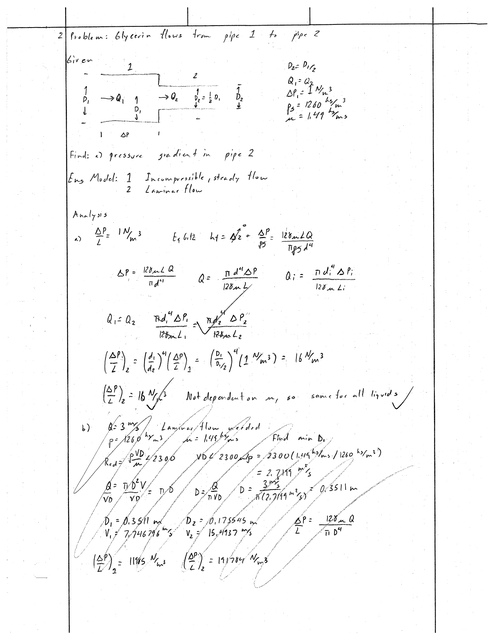 2 Problem: Glycerin flows from pipe 1 to pipe 2
Given
1 2
D₂ = D₁/2
Q₁ = Q₂
ΔP₁ = 1 N/m³
ρg = 1260 kg/m³
μ = 1.49 kg/ms
D₁ → Q₁ D₁ → Q₂ D₂ = ½ D₁ D₂
1 ΔP 1
Find: a) pressure gradient in pipe 2
Eng Model: 1 Incompressible, steady flow
2 Laminar flow
Analysis
a) ΔP/L = 1 N/m³ Eq 6.12 hf = Δz⁰ + ΔP/ρg = 128μLQ/πρgd⁴
ΔP = 128μLQ/πd⁴ Q = πd⁴ΔP/128μL Qi = πdi⁴ΔPi/128μLi
Q₁ = Q₂ πd₁⁴ΔP₁/128μL₁ = πd₂⁴ΔP₂/128μL₂
(ΔP/L)₂ = (d₁/d₂)⁴(ΔP/L)₁ = (D₁/D₁/₂)⁴(1 N/m³) = 16 N/m³
(ΔP/L)₂ = 16 N/m³ Not dependent on μ, so same for all liquids
b) Q = 3 m³/s Laminar flow needed
ρ = 1260 kg/m³ μ = 1.49 kg/ms Find min D₁
Red = ρVD/μ < 2300 VD < 2300 μ/ρ = 2300(1.49 kg/ms/1260 kg/m³)
= 2.7199 m²/s
Q/VD = πD²V/VD = πD D = Q/πVD D = 3 m³/s/π(2.7199 m²/s) = 0.3511 m
D₁ = 0.3511 m D₂ = 0.175545 m ΔP/L = 128μQ/πD⁴
V₁ = 7.746796 m/s V₂ = 15.4937 m/s
(ΔP/L)₁ = 11985 N/m³ (ΔP/L)₂ = 191784 N/m³